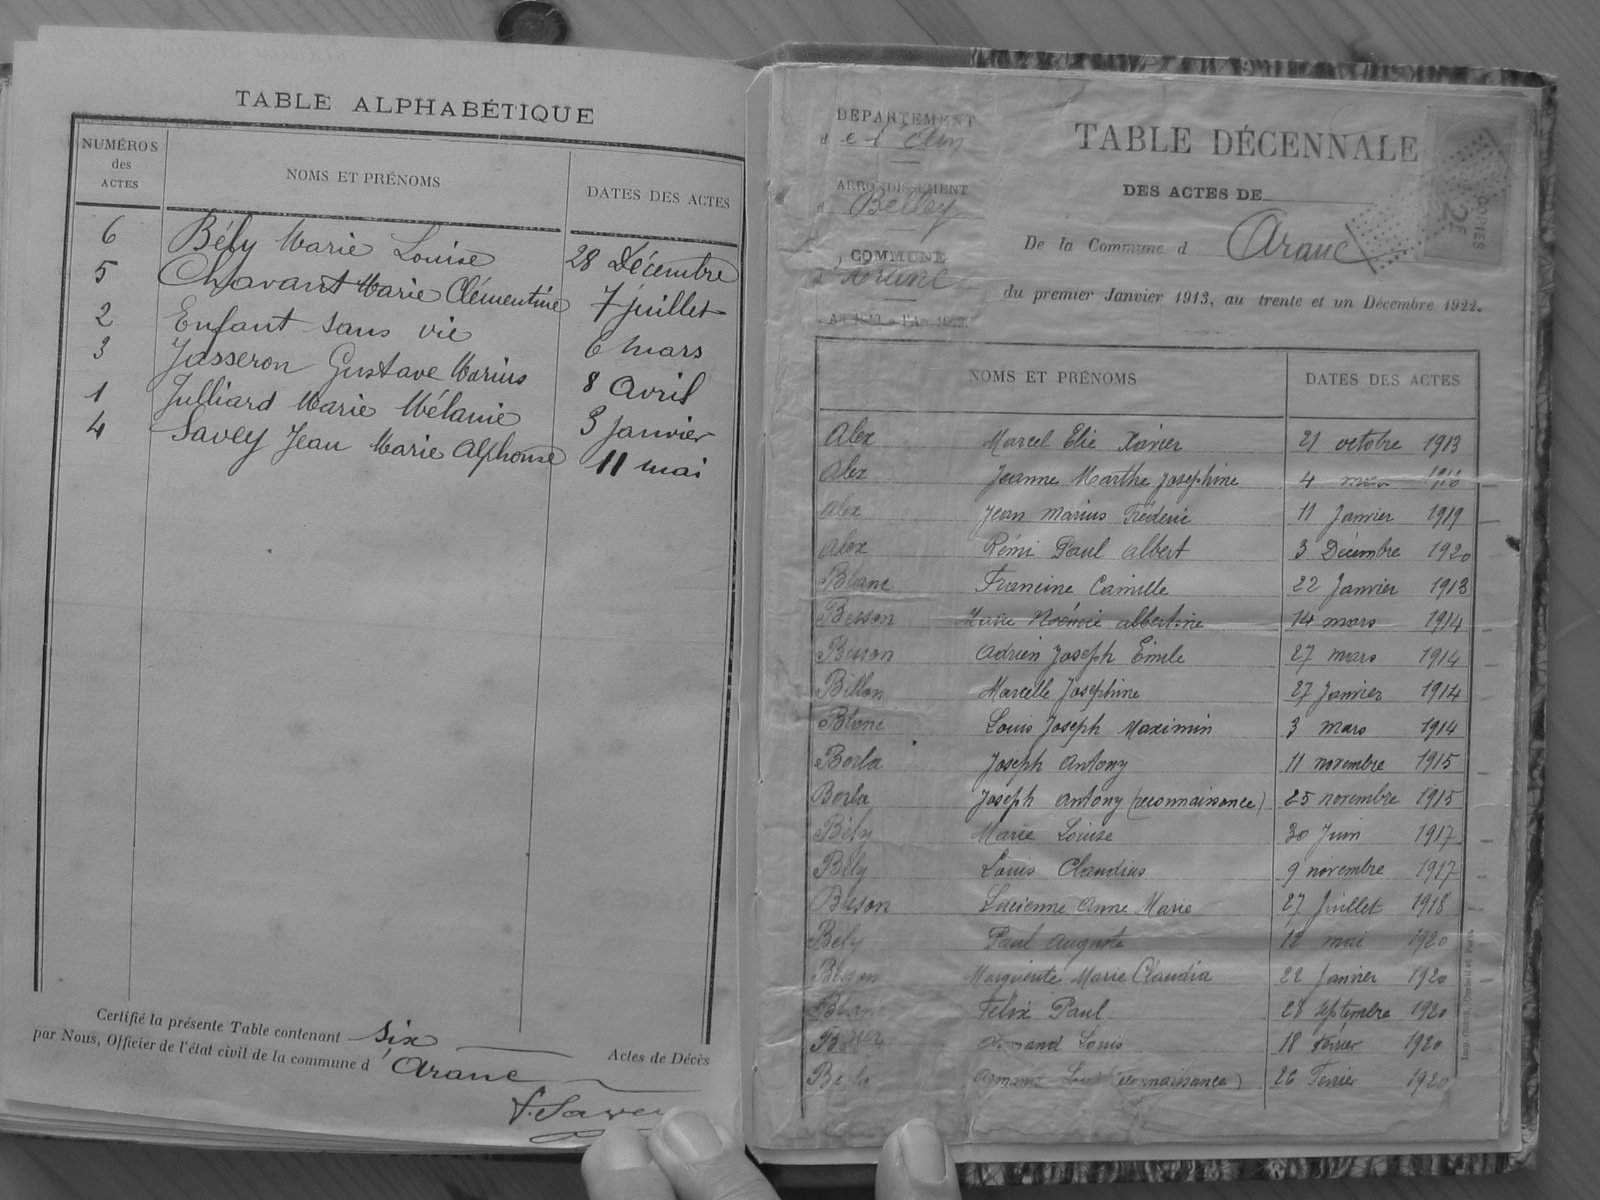 TABLE ALPHABÉTIQUE
NUMÉROS des ACTES
NOMS ET PRÉNOMS
DATES DES ACTES
6 Bély Marie Louise 28 Décembre
5 Chavant Marie Clémentine 7 juillet
2 Enfant sans vie 6 mars
3 Jasseron Gustave Marius 8 Avril
1 Julliard Marie Mélanie 3 Janvier
4 Savey Jean Marie Alphonse 11 mai
Certifié la présente Table contenant six Actes de Décès
par Nous, Officier de l'état civil de la commune d'Aranc
DÉPARTEMENT
de l'Ain
ARRONDISSEMENT
Belley
COMMUNE
d'Aranc
TABLE DÉCENNALE
DES ACTES DE
De la Commune d Aranc
du premier Janvier 1913, au trente et un Décembre 1922.
NOMS ET PRÉNOMS
DATES DES ACTES
Alex Marcel Elie Xavier 21 octobre 1913
Alex Jeanne Marthe Josephine 4
Alex Jean Marius Fréderic 11 Janvier 1919
Alex Rémi Paul Albert 3 Décembre 1920
Blanc Francine Camille 22 Janvier 1913
Besson Marie Noémie Albertine 14 mars 1914
Besson Adrien Joseph Emile 27 mars 1914
Billon Marcelle Josephine 27 Janvier 1914
Blanc Louis Joseph Maximin 3 mars 1914
Borla Joseph Antony 11 novembre 1915
Borla Joseph Antony (reconnaissance) 25 novembre 1915
Bély Marie Louise 30 Juin 1917
Bély Louis Claudius 9 novembre 1917
Besson Lucienne Anne Marie 27 Juillet 1918
Bely Paul Auguste 12 mai 1920
Besson Marguerite Marie Claudia 22 Janvier 1920
Blanc Felix Paul 28 septembre 1920
Armand Louis 18 février 1920
Armand Louis (reconnaissance) 26 Fevrier 1920